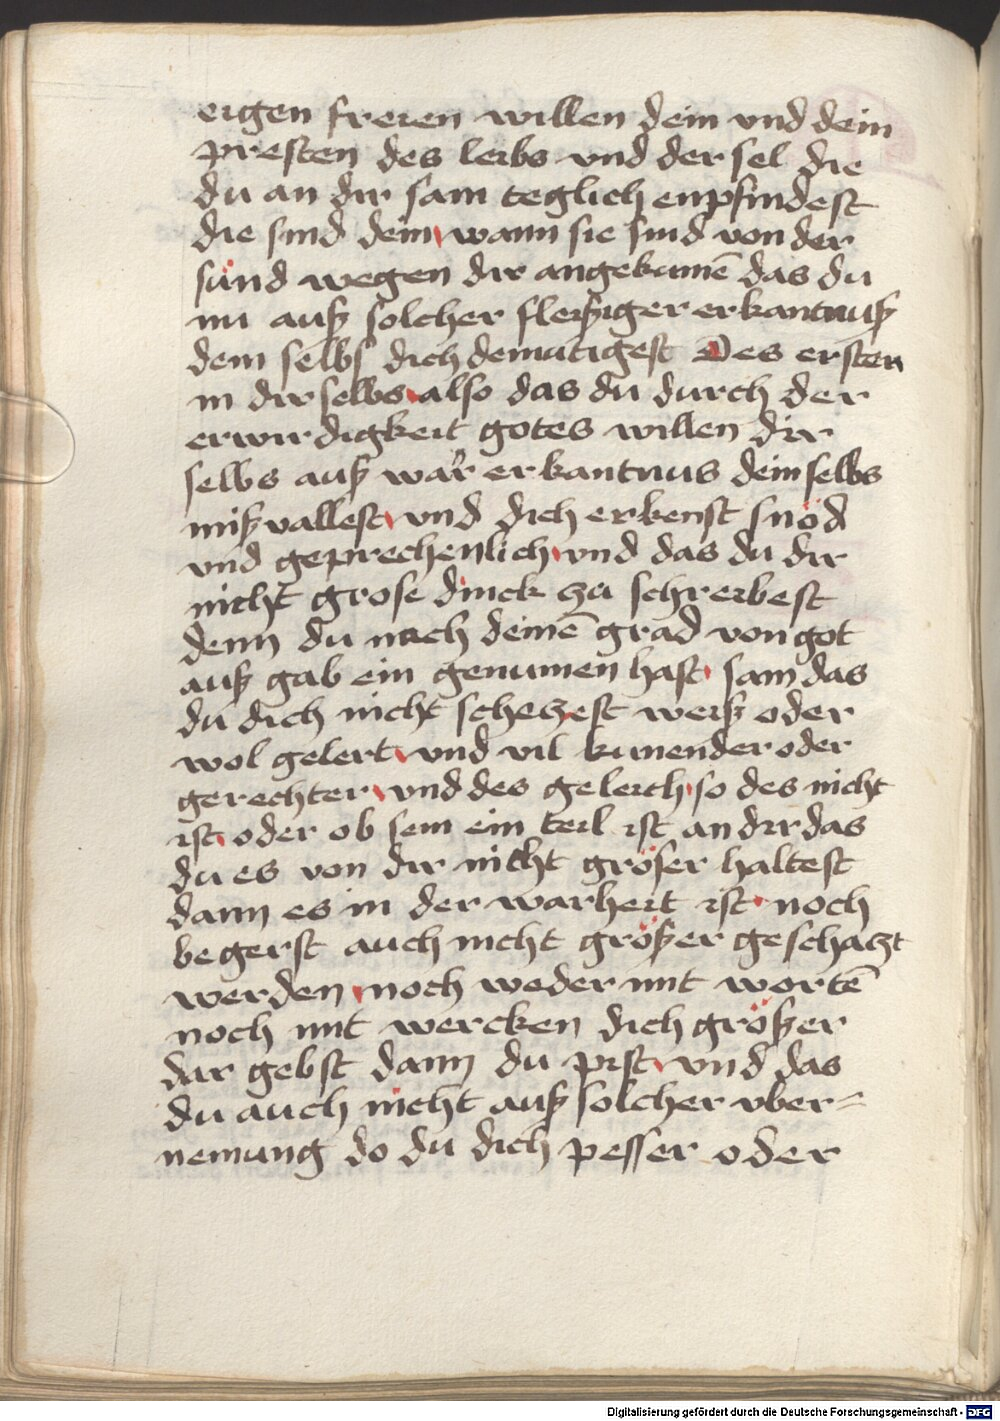 eigen freien willen dein vnd dein
presten des leibs vnd der sel die
du an dir sam teglich enpfindest
die sind dein, wann sie sind von der
sünd wegen dir angekumē das du
nu auß solcher fleißiger erkantnuß
dem selbs dich demutigest Des ersten
in dir selbs, also das du durch der
erwirdigkeit gotes willen dir
selbs auß warr erkantnus dein selbs
mißvallest, vnd dich erkenst snöd
vnd geprechenlich, vnd das du dir
nicht grose dinck zu schreibest
denn du nach deinē grad von got
auß gab ein genumen hast, sam das
du dich nicht schetzest weiß oder
wol gelert, vnd vil kunender oder
gerechter, vnd des geleich, so des nicht
ist, oder ob sein ein teil ist an dir das
du es von dir nicht gröser haltest
dann es in der warheit ist, noch
begerst auch nicht größer geschatzt
werden, noch weder mit wortē
noch mit wercken dich größer
dar gebst dann du pist, vnd das
du auch nicht auß solcher vber=
nemung do du dich pesser oder
Digitalisierung gefördert durch die Deutsche Forschungsgemeinschaft - DFG